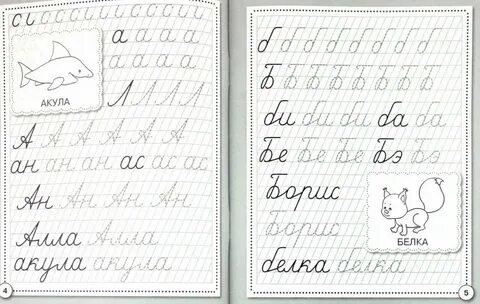 сı ı ı ı ı ı ı ı ı
а а а а а
а а а а
АКУЛА
Л Л Л Л
А А А А А А
ан ан ан ас ас ас
Ан Ан Ан Ан
Алла Алла
акула акула
4
б б б б б б б б
Б Б Б Б Б Б Б Б
би би би ба ба
Бе Бе Бе Бэ Бэ
Борис
Борис
БЕЛКА
белка белка
5